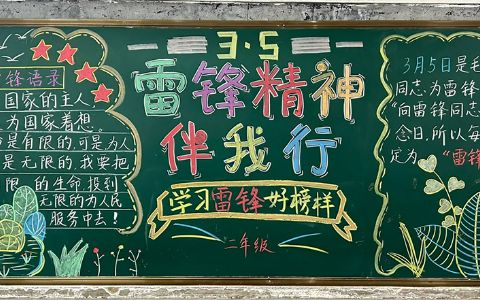 3·5
雷锋精神
伴我行
学习雷锋好榜样
二年级
锋语录
国家的主人,
为国家着想。
是有限的,可是为人
是无限的,我要把
限的生命,投到
无限的为人民
服务中去!
3月5日是毛
同志,为雷锋
“向雷锋同志
念日,所以每
定为“雷锋